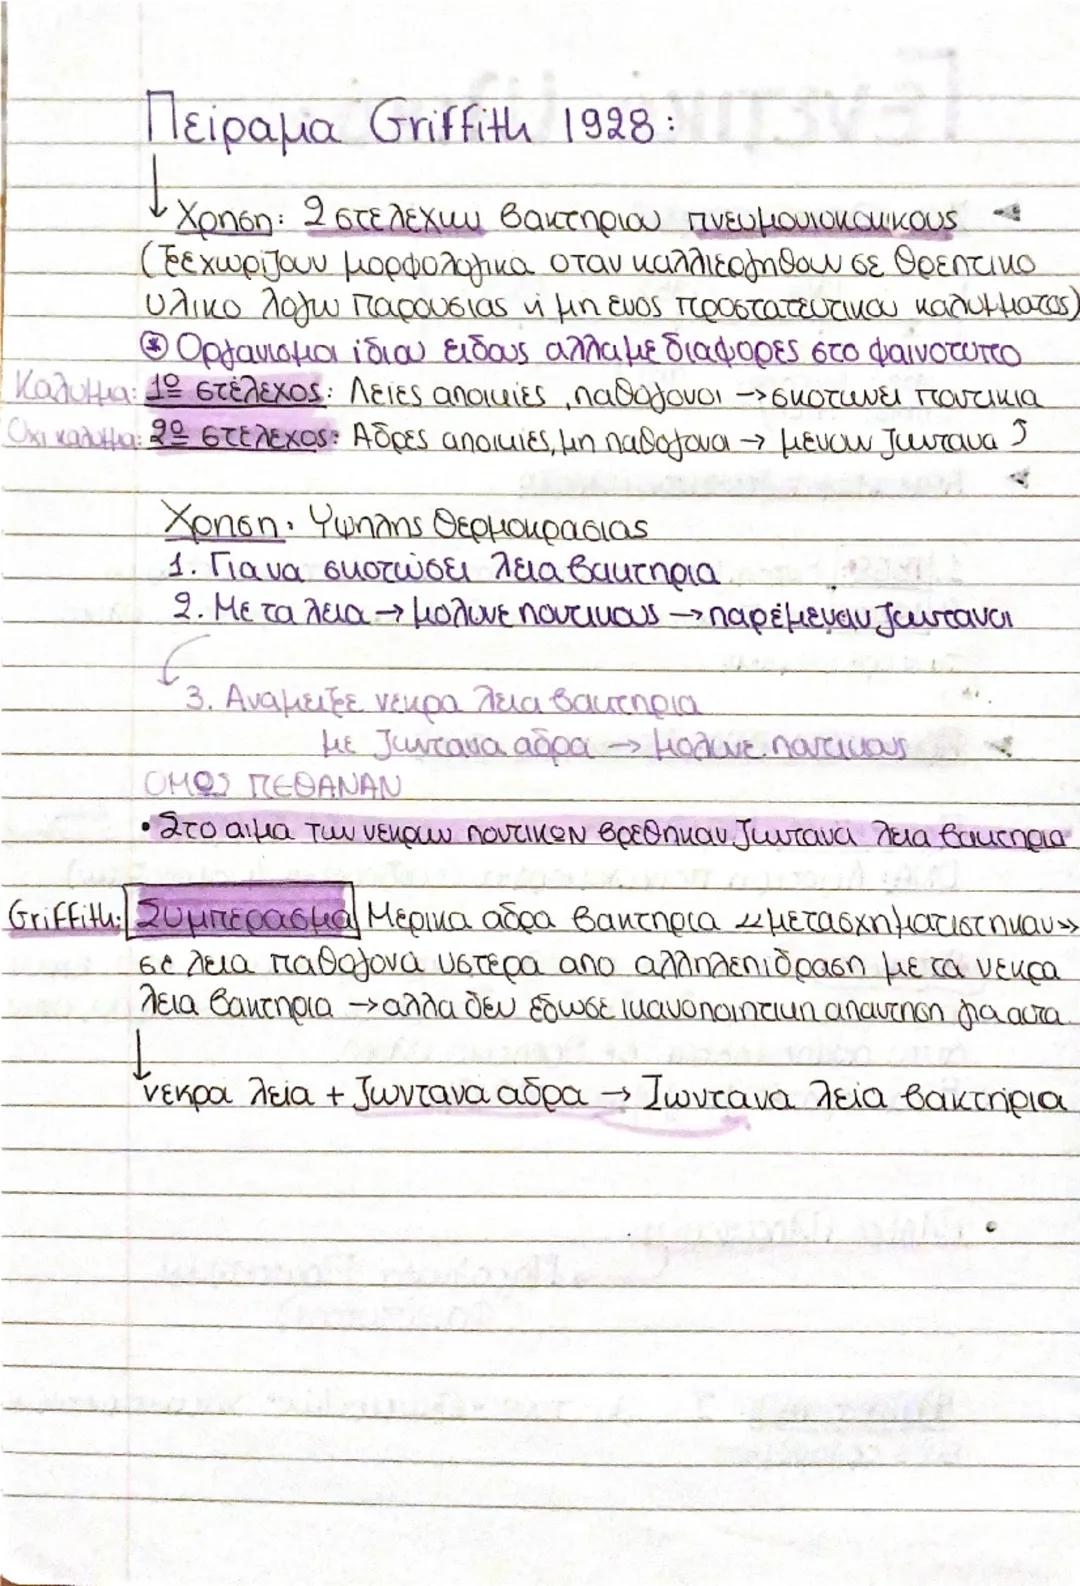 Πείραμα Griffith 1928:
↓ Χρηση: 2 στελεχων βακτηριου πνευμονιοκοκκους
(ξεχωριζουν μορφολογικα οταν καλλιεργηθουν σε θρεπτικο
υλικο λογω παρουσιας ή μη ενος προστατευτικου καλυμματος)
* Οργανισμοι ίδιου ειδους αλλα με διαφορες στο φαινοτυπο
Καλυμμα: 1º στέλεχος: Λείες αποικίες, παθογονοι → σκοτωνει ποντικια
Οχι καλυμμα: 2º στελεχος: Αδρες αποικιες, μη παθογονα → μενουν ζωντανα
Χρηση: Υψηλης Θερμοκρασιας
1. Για να σκοτώσει λεια βακτηρια
2. Με τα λεια → μολυνε ποντικους → παρέμεναν ζωντανοι
3. Αναμειξε νεκρα λεια βακτηρια
με ζωντανα αδρα → μολυνε ποντικους
ΟΜΩΣ ΠΕΘΑΝΑΝ
• Στο αιμα των νεκρων ποντικων βρεθηκαν ζωντανα λεια βακτηρια
Griffith: Συμπερασμα Μερικα αδρα βακτηρια «μετασχηματιστηκαν»
σε λεια παθογονα υστερα απο αλληλεπιδραση με τα νεκρα
λεια βακτηρια → αλλα δεν έδωσε ικανοποιητικη απαντηση για αυτα
↓
νεκρα λεία + ζωντανα αδρα → ζωντανα λεία βακτήρια